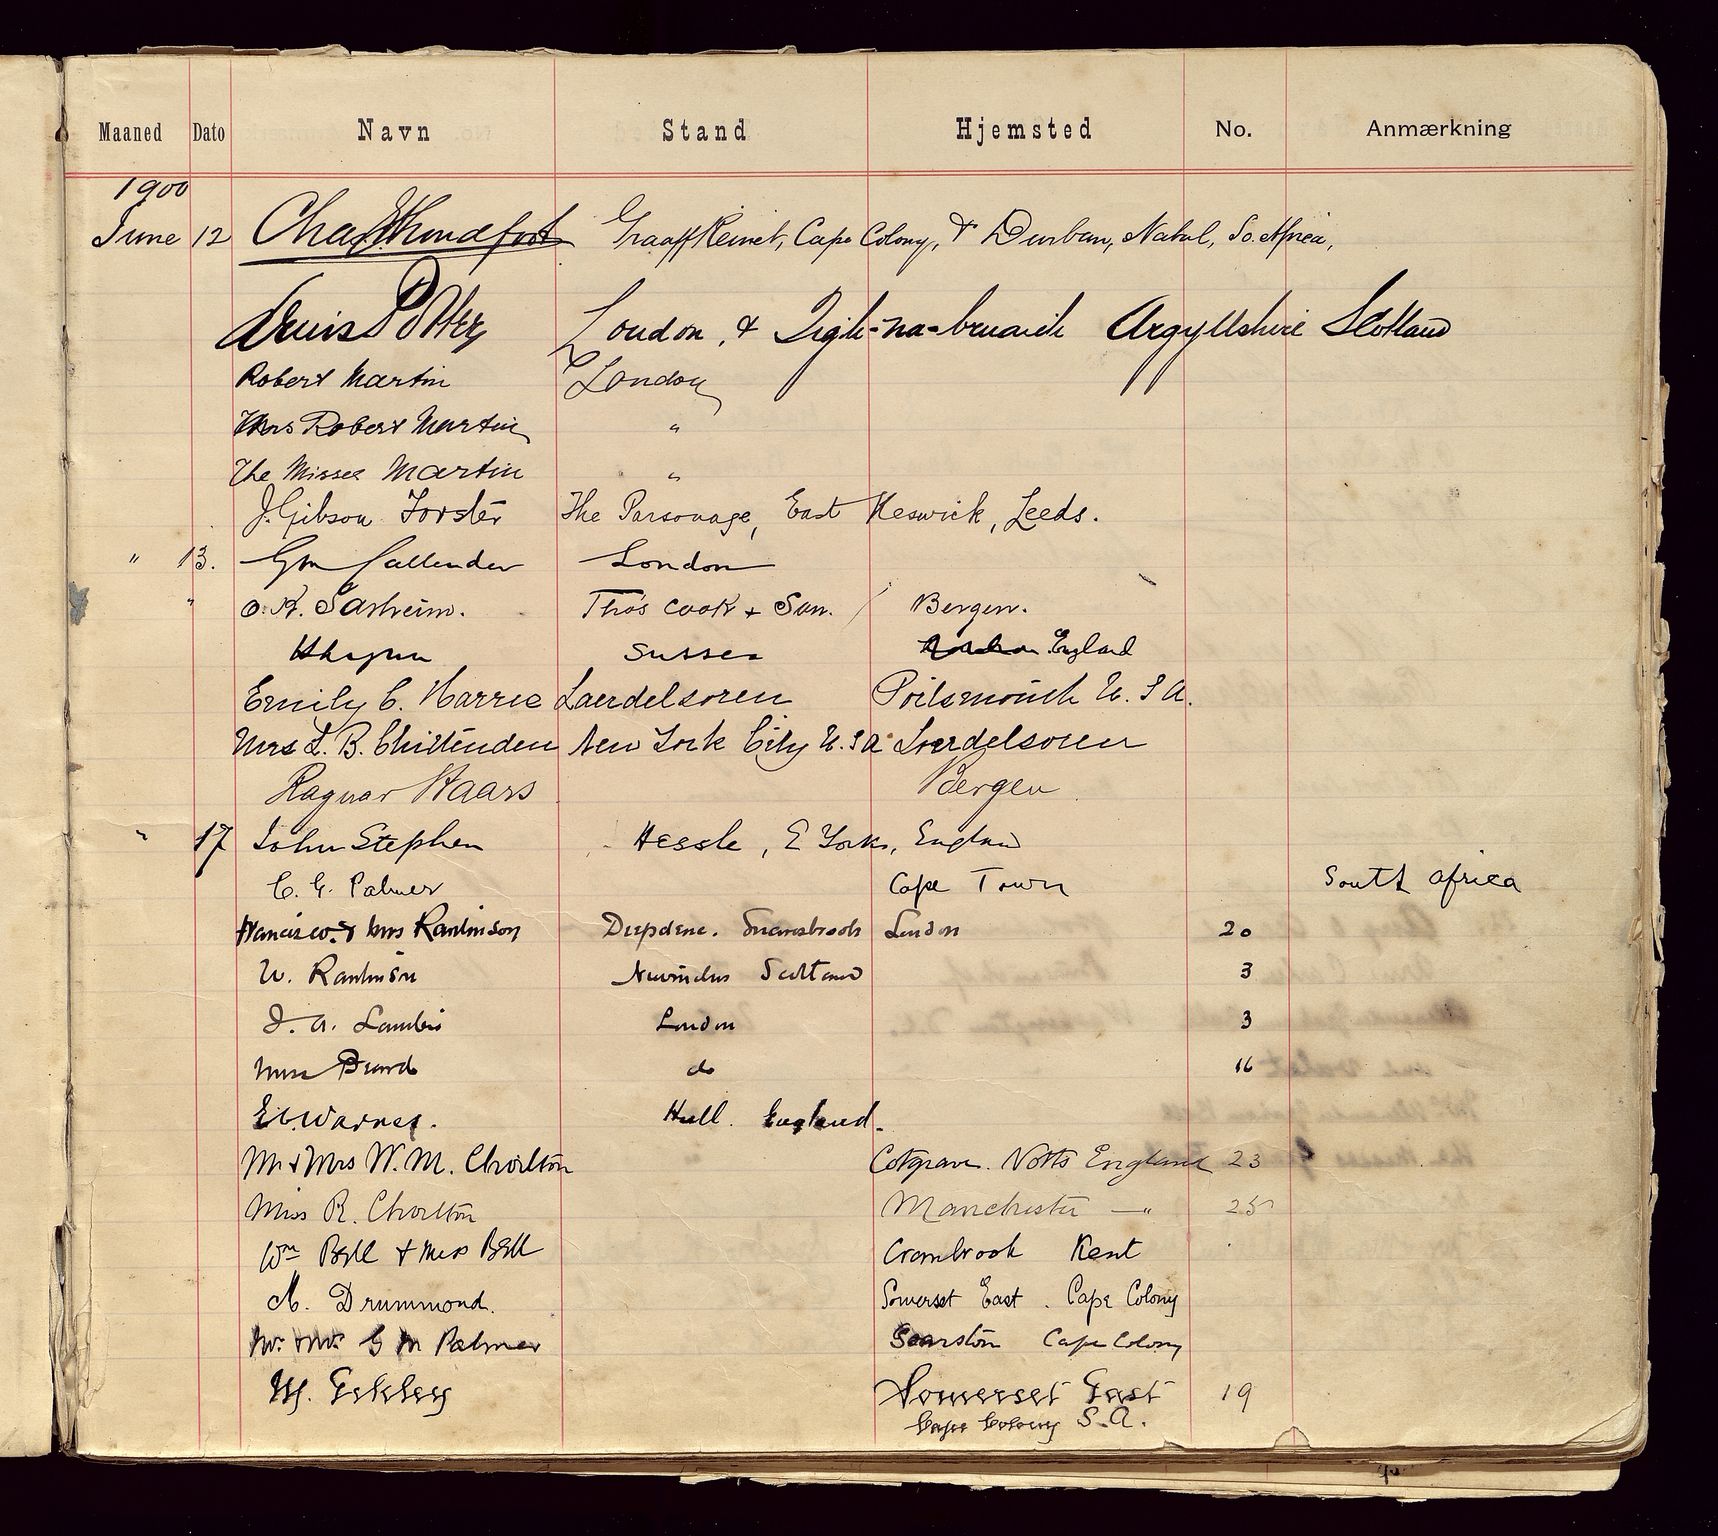 Maaned Dato Navn Stand Hjemsted No. Anmærkning
1900
June 12 Graaff Reinet, Cape Colony, & Durban, Natal, So. Africa,
Potter London, & Tigh-na-bruaich Argyllshire Scotland
Robert Martin London
Mrs Robert Martin "
The Misses Martin "
J. Gibson Forster The Parsonage, East Keswick, Leeds.
" 13. Callender London
" Thos Cook & Son. / Bergen.
Sussex England
Emily C. Harris Laerdelsoren Portsmouth U.S.A.
Mrs L. B. Chittenden New York City U.S.A. Laerdelsoren
Ragnar Haars Bergen
" 17 John Stephen Hessle, E Yorks, England
C. G. Palmer Cape Town South Africa
& Mrs Rawlinson Deepdene. Snaresbrook London 20
W. Rawlinson Scotland 3
London 3
Miss do 16
Hull. England.
Mr & Mrs W. M. Chorlton Cotgrave. Notts England 23
Miss R. Chorlton Manchester — " 25
Wm Bell & Miss Bell Cranbrook Kent
A. Drummond. Somerset East. Cape Colony
Mr. & Mrs. G M Palmer Cape Colony
Somerset East 19
Cape Colony S.A.